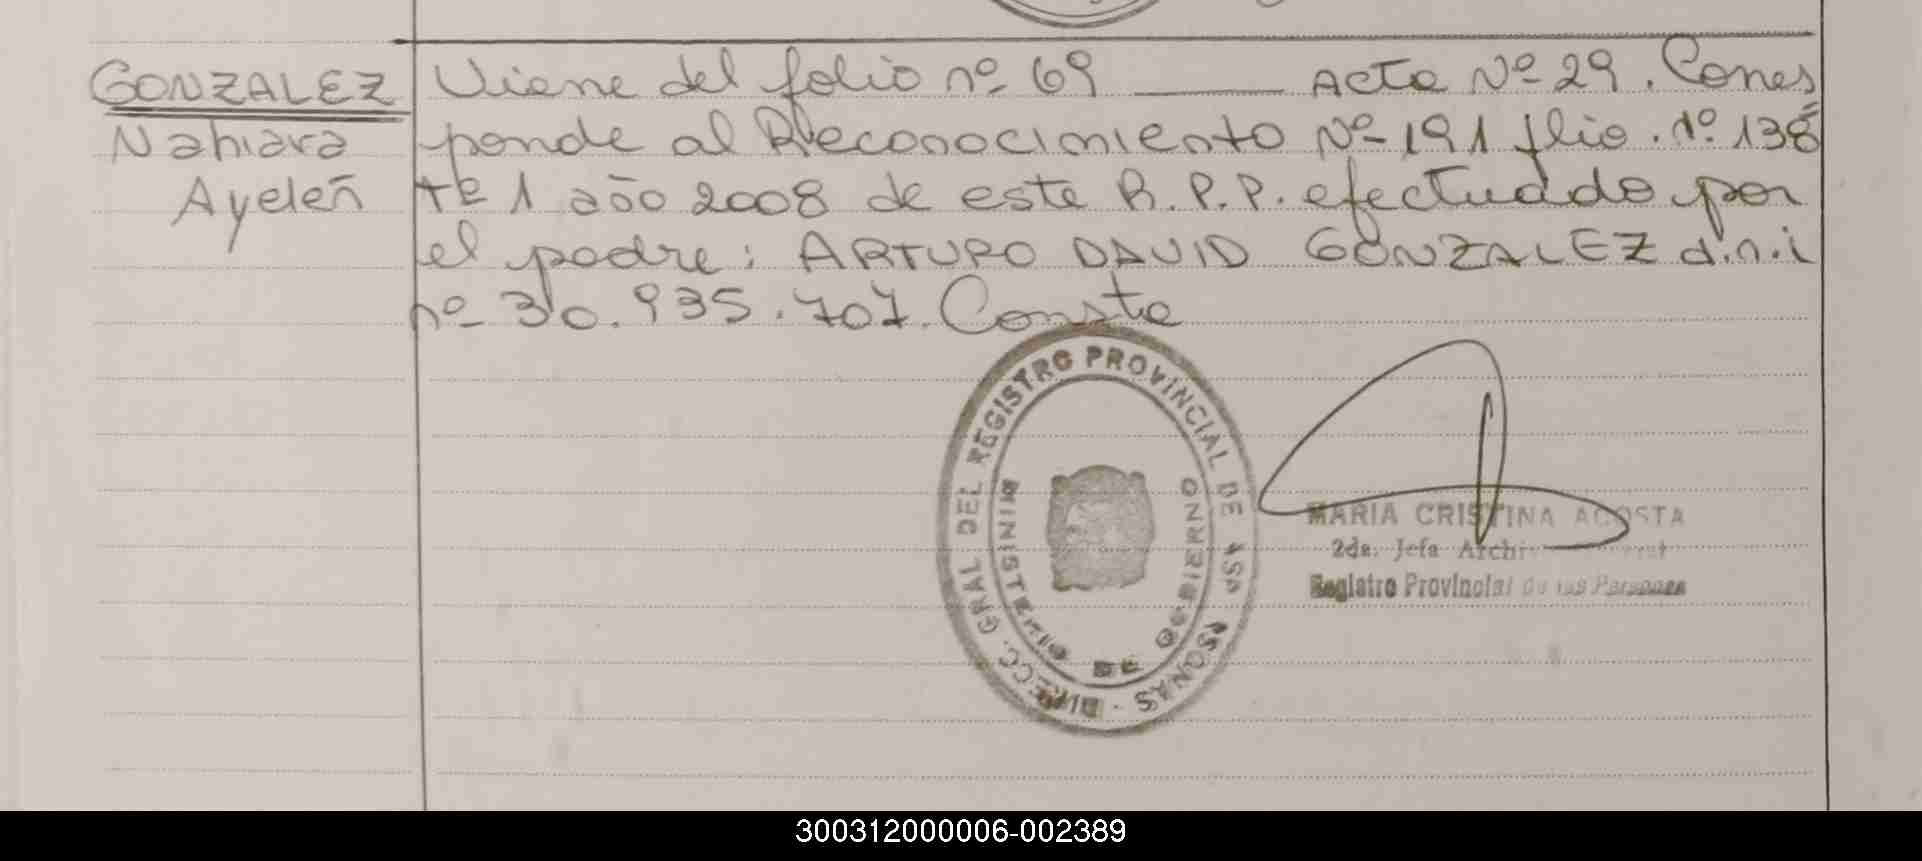 GONZALEZ
Nahiara
Ayelén
Viene del folio nº 69 ——— Acta Nº 29. Corres
ponde al Reconocimiento Nº 191 flio. nº 138
tº 1 año 2008 de este R.P.P. efectuado por
el padre: ARTURO DAVID GONZALEZ d.n.i
nº 30.935.707. Conste
DIRECC. GRAL DEL REGISTRO PROVINCIAL DE PERSONAS
MINISTERIO DE GOBIERNO
MARIA CRISTINA ACOSTA
2da. Jefa
Registro Provincial de las Personas
300312000006-002389